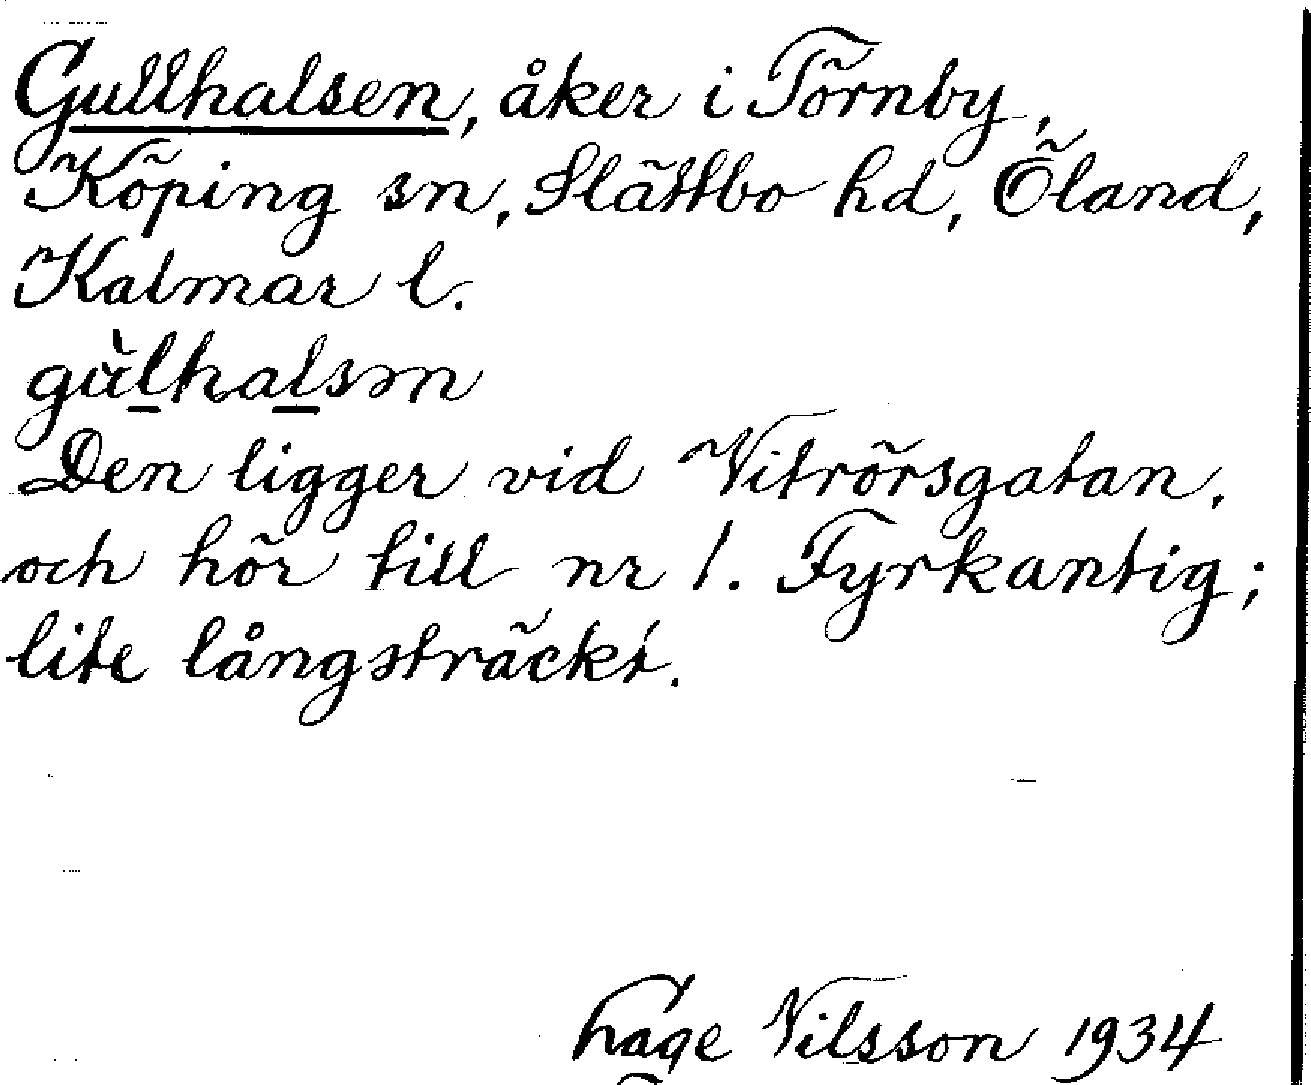 Gullhalsen, åker i Törnby,
Köping sn, Slättbo hd, Öland,
Kalmar l.
gùlhalsən
Den ligger vid Vitrörsgatan.
och hör till nr 1. Fyrkantig;
lite långsträckt.
Hage Nilsson 1934